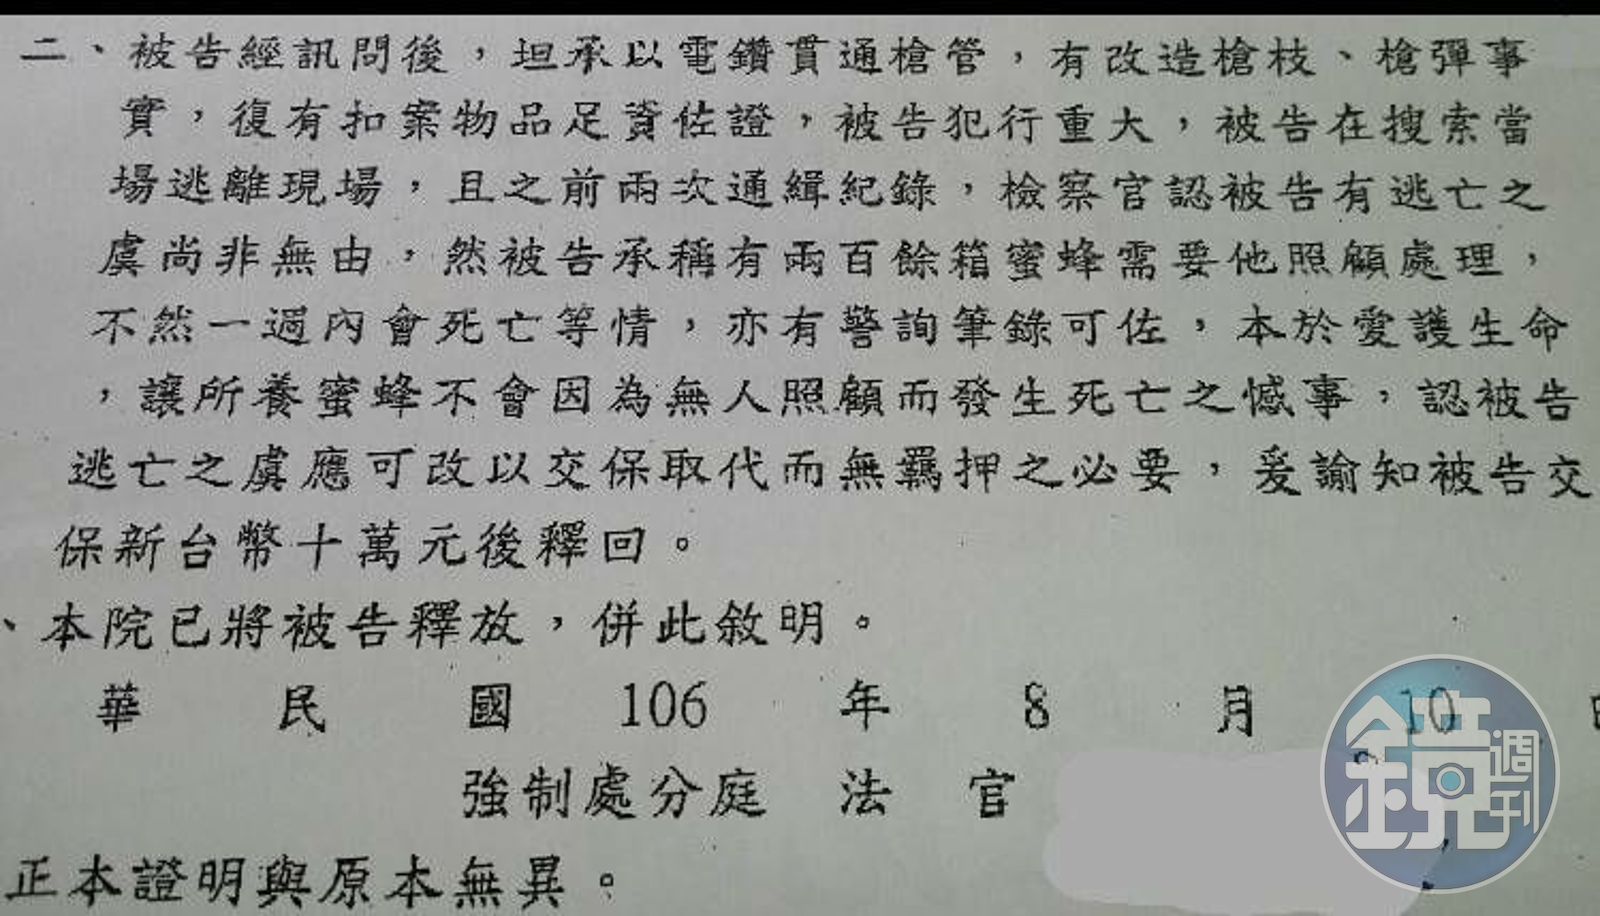 二、被告經訊問後，坦承以電鑽貫通槍管，有改造槍枝、槍彈事
實，復有扣案物品足資佐證，被告犯行重大，被告在搜索當
場逃離現場，且之前兩次通緝紀錄，檢察官認被告有逃亡之
虞尚非無由，然被告承稱有兩百餘箱蜜蜂需要他照顧處理，
不然一週內會死亡等情，亦有警詢筆錄可佐，本於愛護生命
，讓所養蜜蜂不會因為無人照顧而發生死亡之憾事，認被告
逃亡之虞應可改以交保取代而無羈押之必要，爰諭知被告交
保新台幣十萬元後釋回。
、本院已將被告釋放，併此敘明。
華 民 國 106 年 8 月 10 日
強制處分庭 法 官
正本證明與原本無異。
鏡週刊